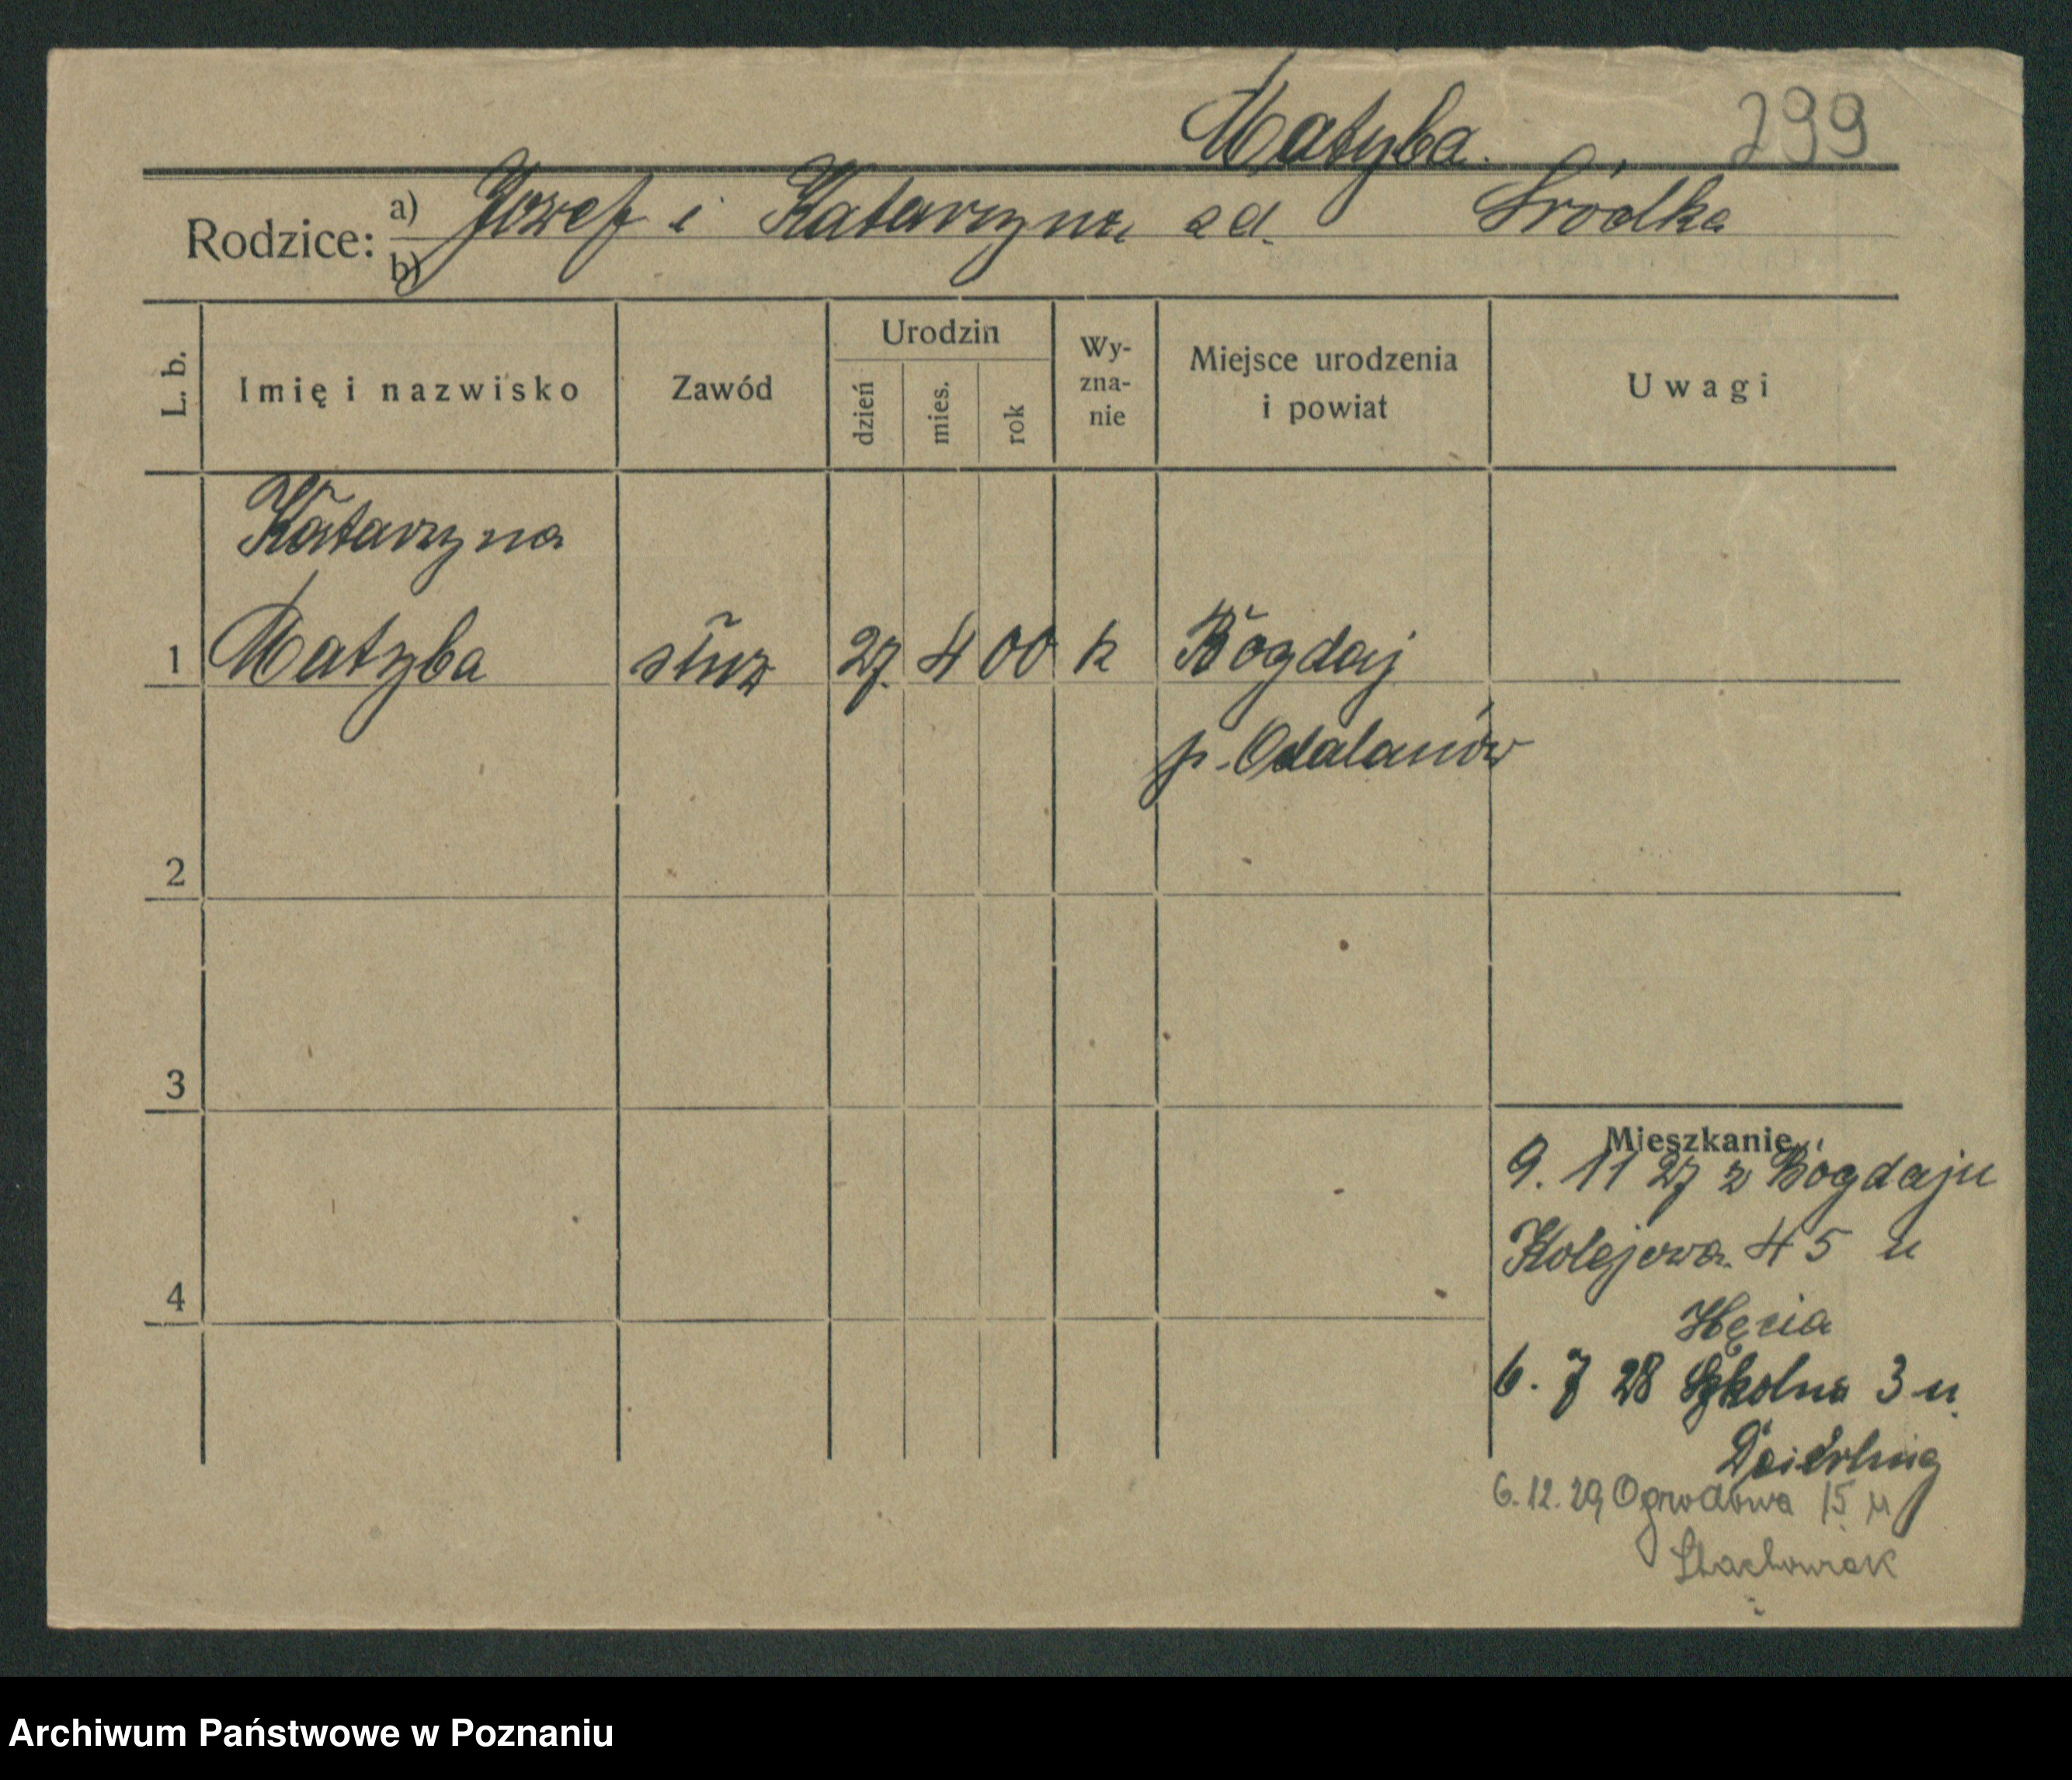 Matyba. 299
Rodzice: a) Józef i Katarzyna zd. Śródka
b)
L. b. Imię i nazwisko Zawód Urodzin dzień mies. rok Wy-zna-nie Miejsce urodzenia i powiat Uwagi
Katarzyna
1 Matyba służ 27. 4 00 k Bogdaj
p. Odolanów
2
3
Mieszkanie
9. 11 27 z Bogdaju
Kolejowa 45 u
4
Hęcia
6. 7 28 Szkolna 3 u.
6. 12. 29 Ogrodowa 15 u
Stachowiak
Archiwum Państwowe w Poznaniu